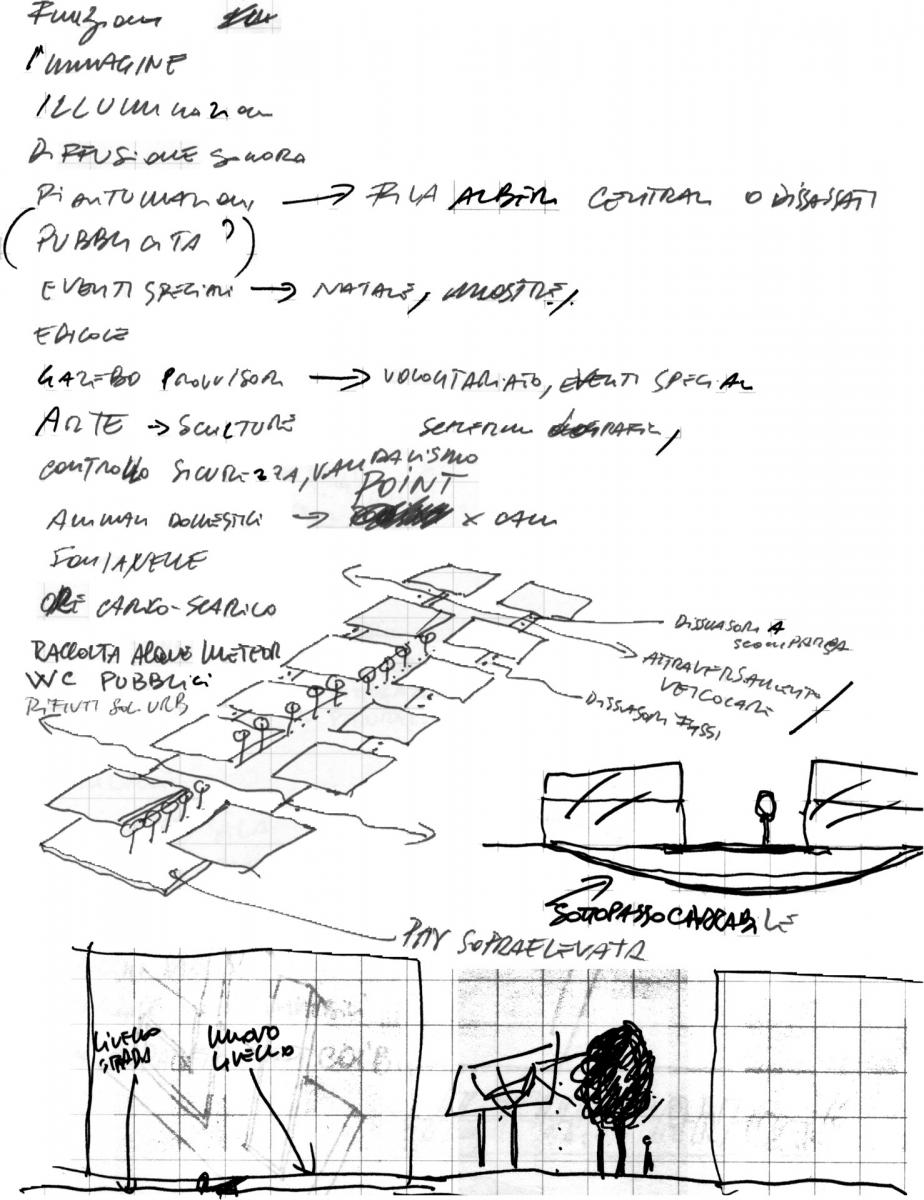 Funzioni
IMMAGINE
ILLUMINAZIONE
DIFFUSIONE SONORA
PIANTUMAZIONI → FILA ALBERI CENTRALI O DISASSATI
(PUBBLICITA?)
EVENTI SPECIALI → NATALE, MOSTRE,
EDICOLE
GAZEBO PROVVISORI → VOLONTARIATO, EVENTI SPECIALI
ARTE → SCULTURE
CONTROLLO SICUREZZA, VANDALISMO
POINT
ANIMALI DOMESTICI → X CANI
FONTANELLE
ORE CARICO-SCARICO
RACCOLTA ACQUE METEOR
WC PUBBLICI
RIFIUTI SOL. URB
DISSUASORI A
SCOMPARSA
ATTRAVERSAMENTO
VEICOLARE
DISSUASORI FISSI
SOTTOPASSO CARRABILE
PAV SOPRAELEVATA
LIVELLO
STRADA
NUOVO
LIVELLO